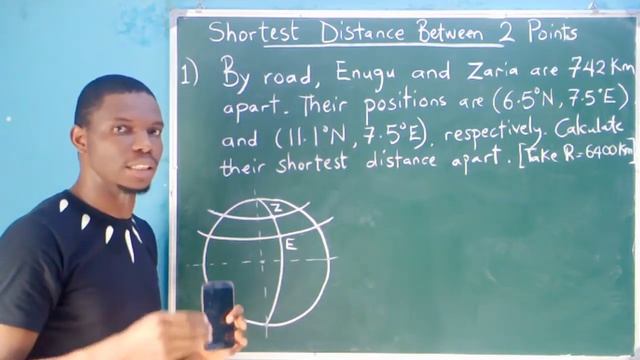 Shortest Distance Between 2 Points
1) By road, Enugu and Zaria are 742 Km
apart. Their positions are (6.5°N, 7.5°E)
and (11.1°N, 7.5°E), respectively. Calculate
their shortest distance apart. [Take R=6400Km]
Z
E